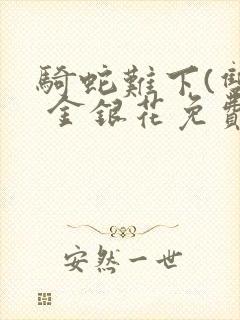 騎蛇難下(雙
金銀花免費
安然一世